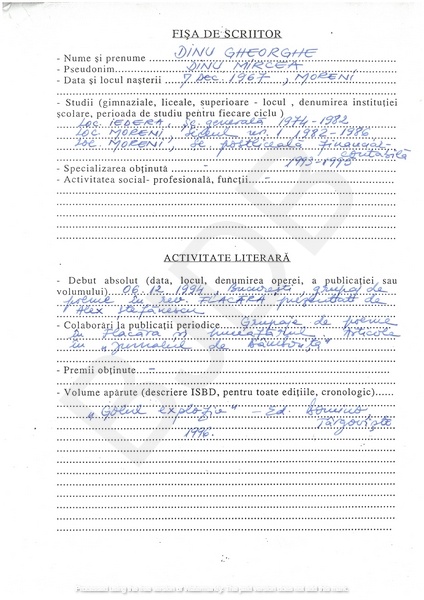 FIŞA DE SCRIITOR
- Nume şi prenume DINU GHEORGHE
- Pseudonim DINU MIRCEA
- Data şi locul naşterii 7 Dec. 1967, MORENI
- Studii (gimnaziale, liceale, superioare - locul , denumirea instituţiei
şcolare, perioada de studiu pentru fiecare ciclu )
Loc. IEDERA, Şc. generală 1974-1982
LOC. MORENI, Liceul nr. 1 1982-1986
Loc. MORENI, Şc. postliceală Financiar-
contabilă
1993-1995
- Specializarea obţinută -
- Activitatea social- profesională, funcţii -
ACTIVITATE LITERARĂ
- Debut absolut (data, locul, denumirea operei, a publicaţiei sau
volumului) 06.12.1994, Bucureşti, grupaj de
poeme în rev. FLACĂRA prezentat de
Alex Ştefănescu
- Colaborări la publicaţii periodice Grupaje de poeme
în Flacăra şi Articole
în „Jurnalul de Dâmboviţa"
- Premii obţinute -
- Volume apărute (descriere ISBD, pentru toate ediţiile, cronologic)
„Golul exploziei" - Ed. Domino
Târgovişte
1996.